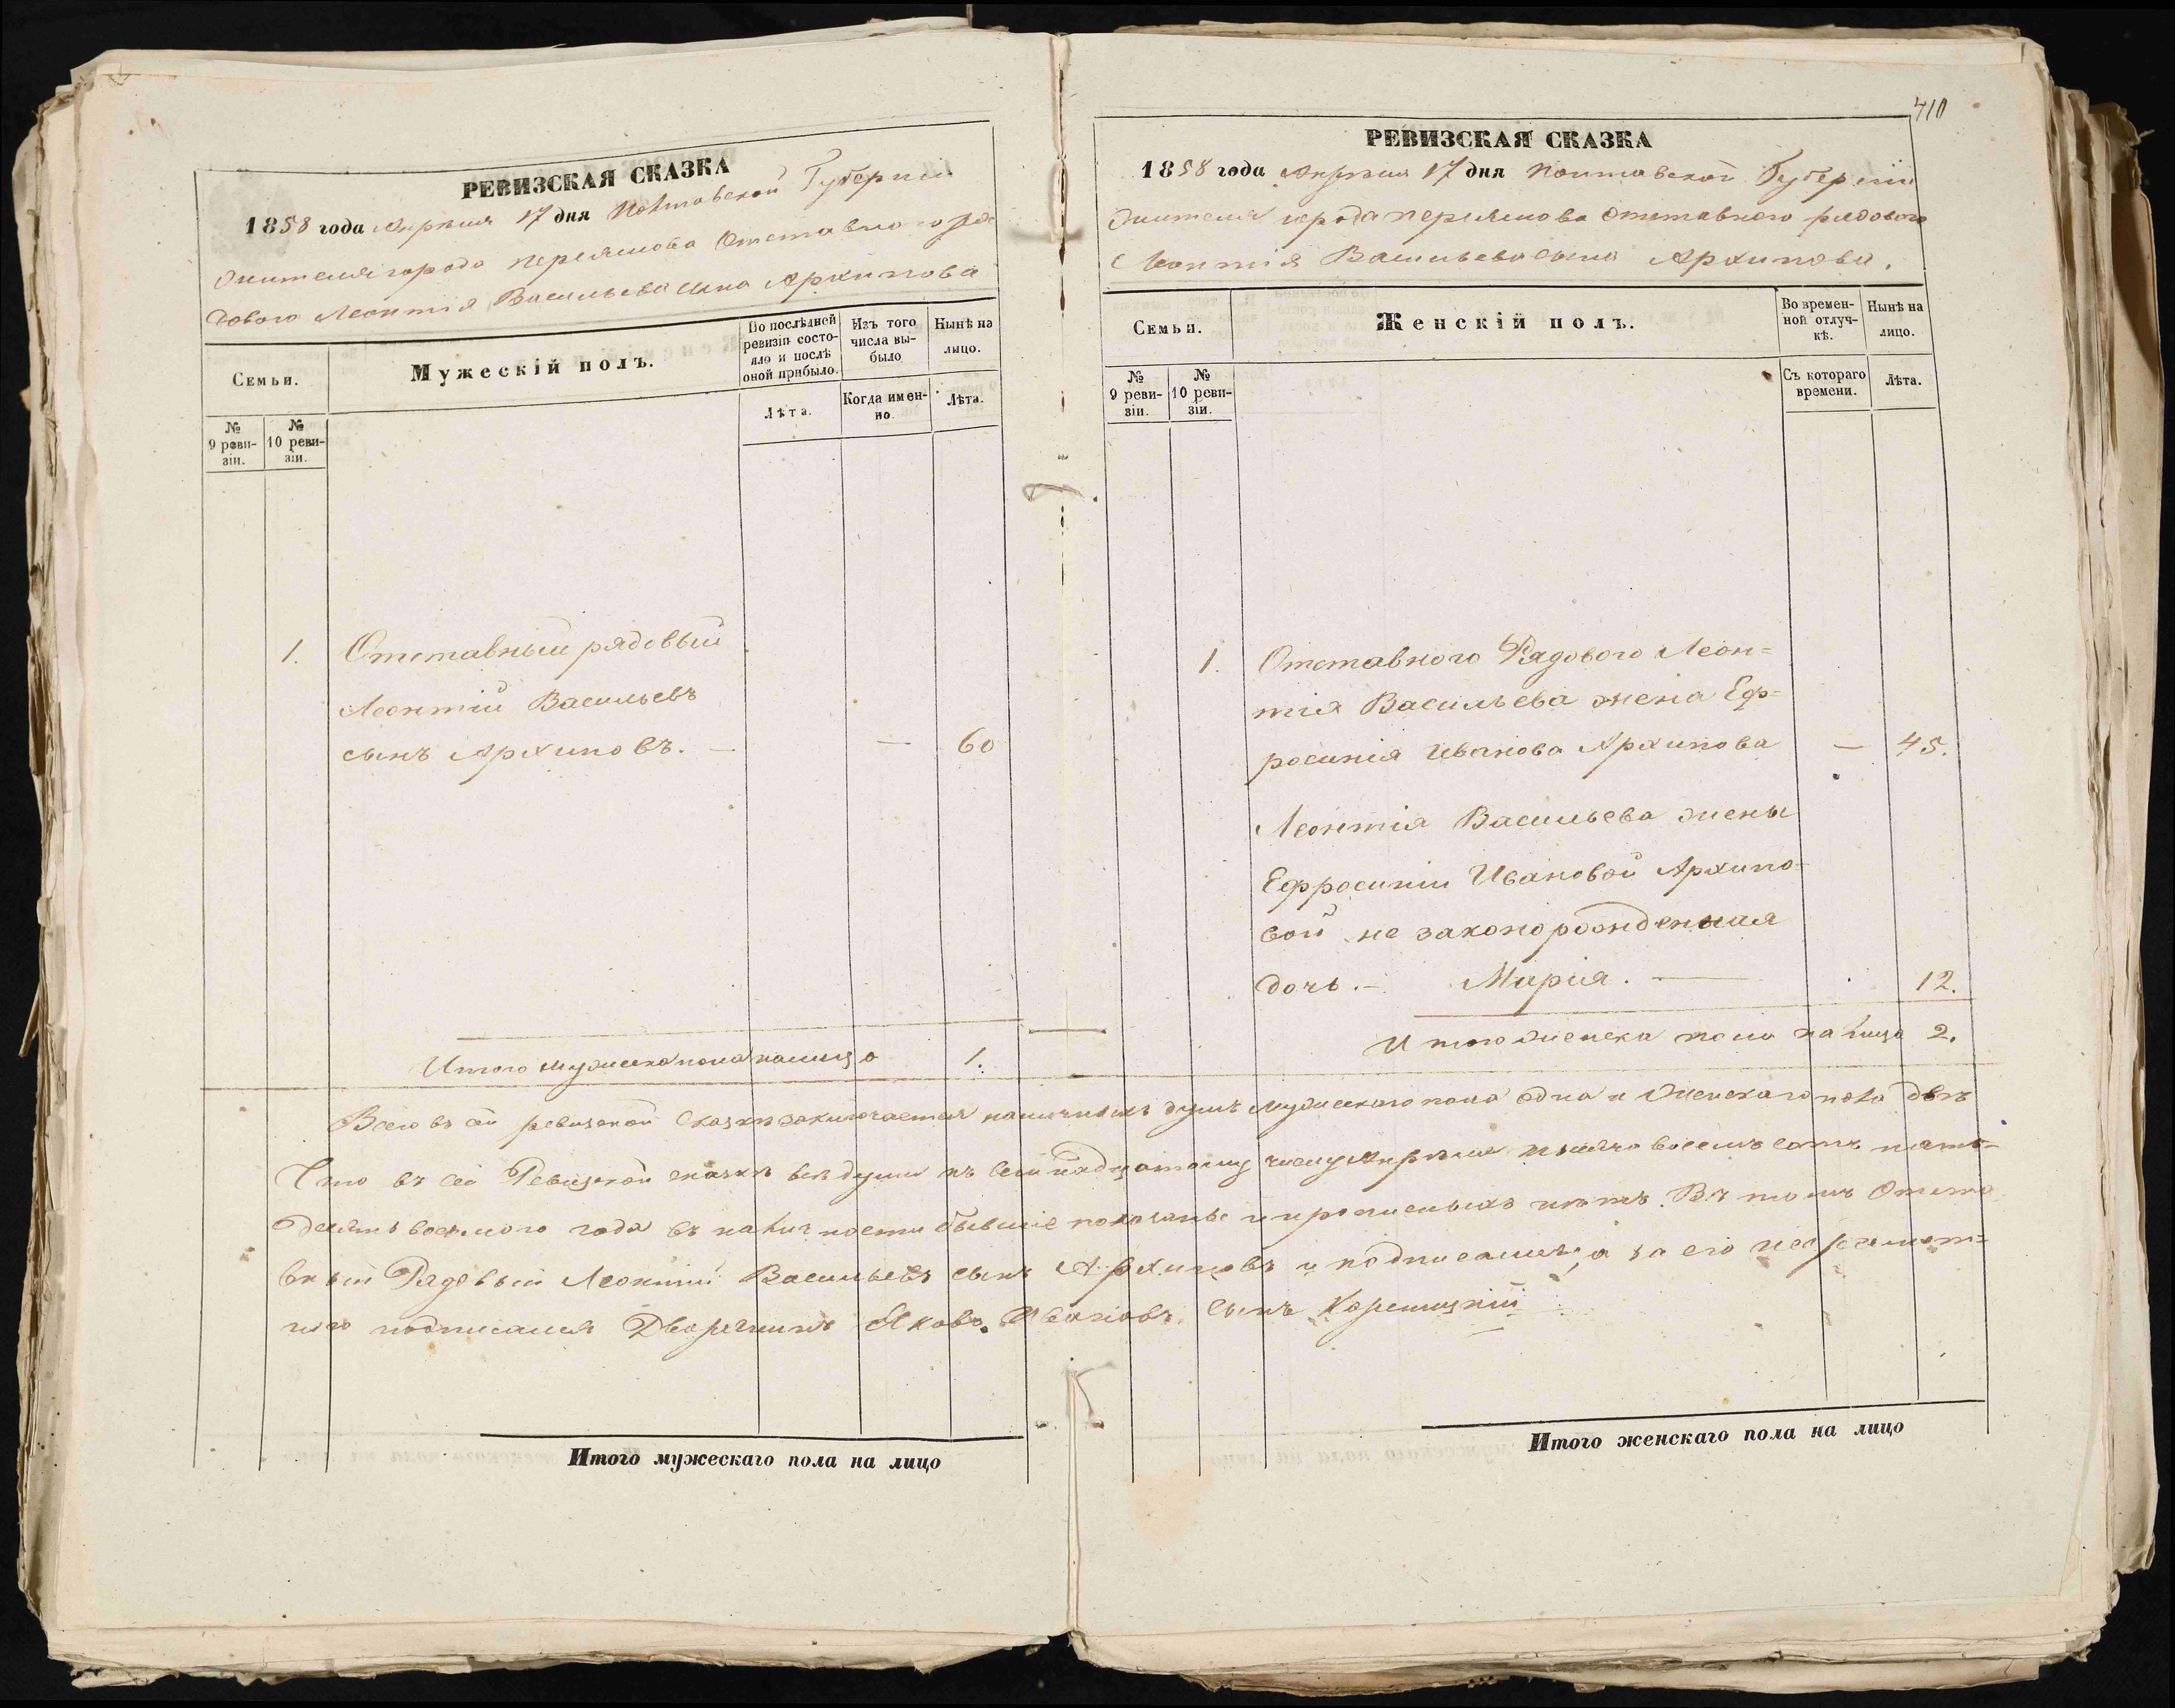 РЕВИЗСКАЯ СКАЗКА
1858 года Апреля 17 дня Полтавской Губернии
жителя города Переяслова Отставного ря
дового Леонтія Васильева сына Архипова
Семьи.
Мужескій полъ.
По послѣдней ревизіи состояло и послѣ оной прибыло.
Изъ того числа выбыло
Нынѣ на лицо.
№ 9 ревизіи.
№ 10 ревизіи.
Лѣта.
Когда именно.
Лѣта.
1. Отставный рядовый
Леонтій Васильевъ
сынъ Архиповъ. — — 60
Итого мужеска пола налицо 1.
410
РЕВИЗСКАЯ СКАЗКА
1858 года Апреля 17 дня Полтавской Губерніи
жителя города Переяслова отставного рядового
Леонтія Васильева сына Архипова.
Семьи.
Женскій полъ.
Во временной отлучкѣ.
Нынѣ на лицо.
№ 9 ревизіи.
№ 10 ревизіи.
Съ котораго времени.
Лѣта.
1. Отставного Рядового Леон=
тія Васильева жена Еф=
росинія Иванова Архипова — 45.
Леонтія Васильева жены
Ефросиніи Ивановой Архипо=
вой не законорожденная
дочь. — Марія. — 12.
Итого женска пола на лицо 2.
Всего въ сей ревизской сказкѣ заключается наличныхъ душъ мужескаго пола одна и Женскаго пола двѣ
Что въ сей Ревизской сказкѣ всѣ души къ семнадцатому числу Апреля тысяча восемъ сотъ пять=
десятъ восьмого года въ наличности бывшіе показаны и прописныхъ нѣтъ. Въ томъ Отста
вный Рядовый Леонтій Васильевъ сынъ Архиповъ и подписался, а за его неграмот=
ного подписался Дворянинъ Яковъ Ивановъ сынъ
Итого мужескаго пола на лицо
Итого женскаго пола на лицо